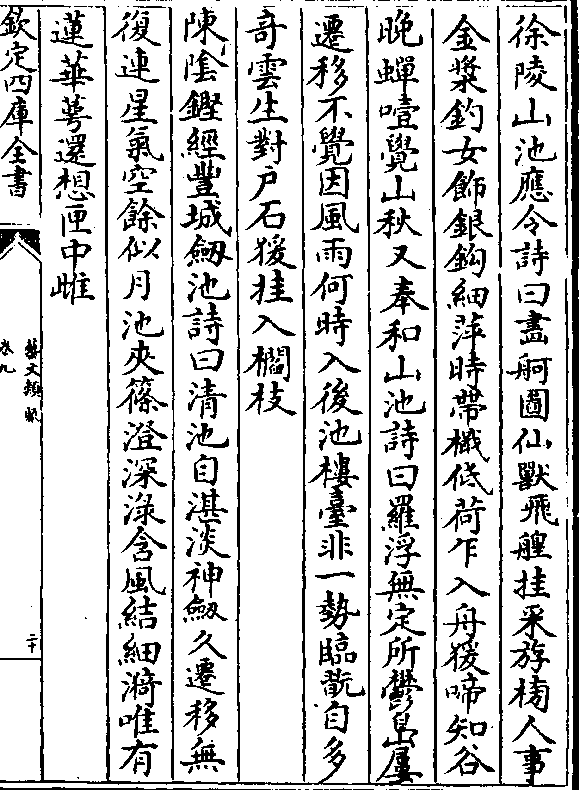 徐陵山池應令詩曰畫舸圖仙獸飛艎挂采斿榜人事
金槳釣女飾銀鈎細萍時帶檝低荷乍入舟猨啼知谷
晚蟬噎覺山秋又奉和山池詩曰羅浮無定所鬱島屢
遷移不覺因風雨何時入後池樓臺非一勢臨翫自多
奇雲生對户石猨挂入櫩枝
陳陰鏗經豐城劔池詩曰清池自湛淡神劔久遷移無
復連星氣空餘似月池夾篠澄深渌含風結細漪唯有
蓮華萼還想匣中雌
欽定四庫全書
藝文類聚
卷九
二十